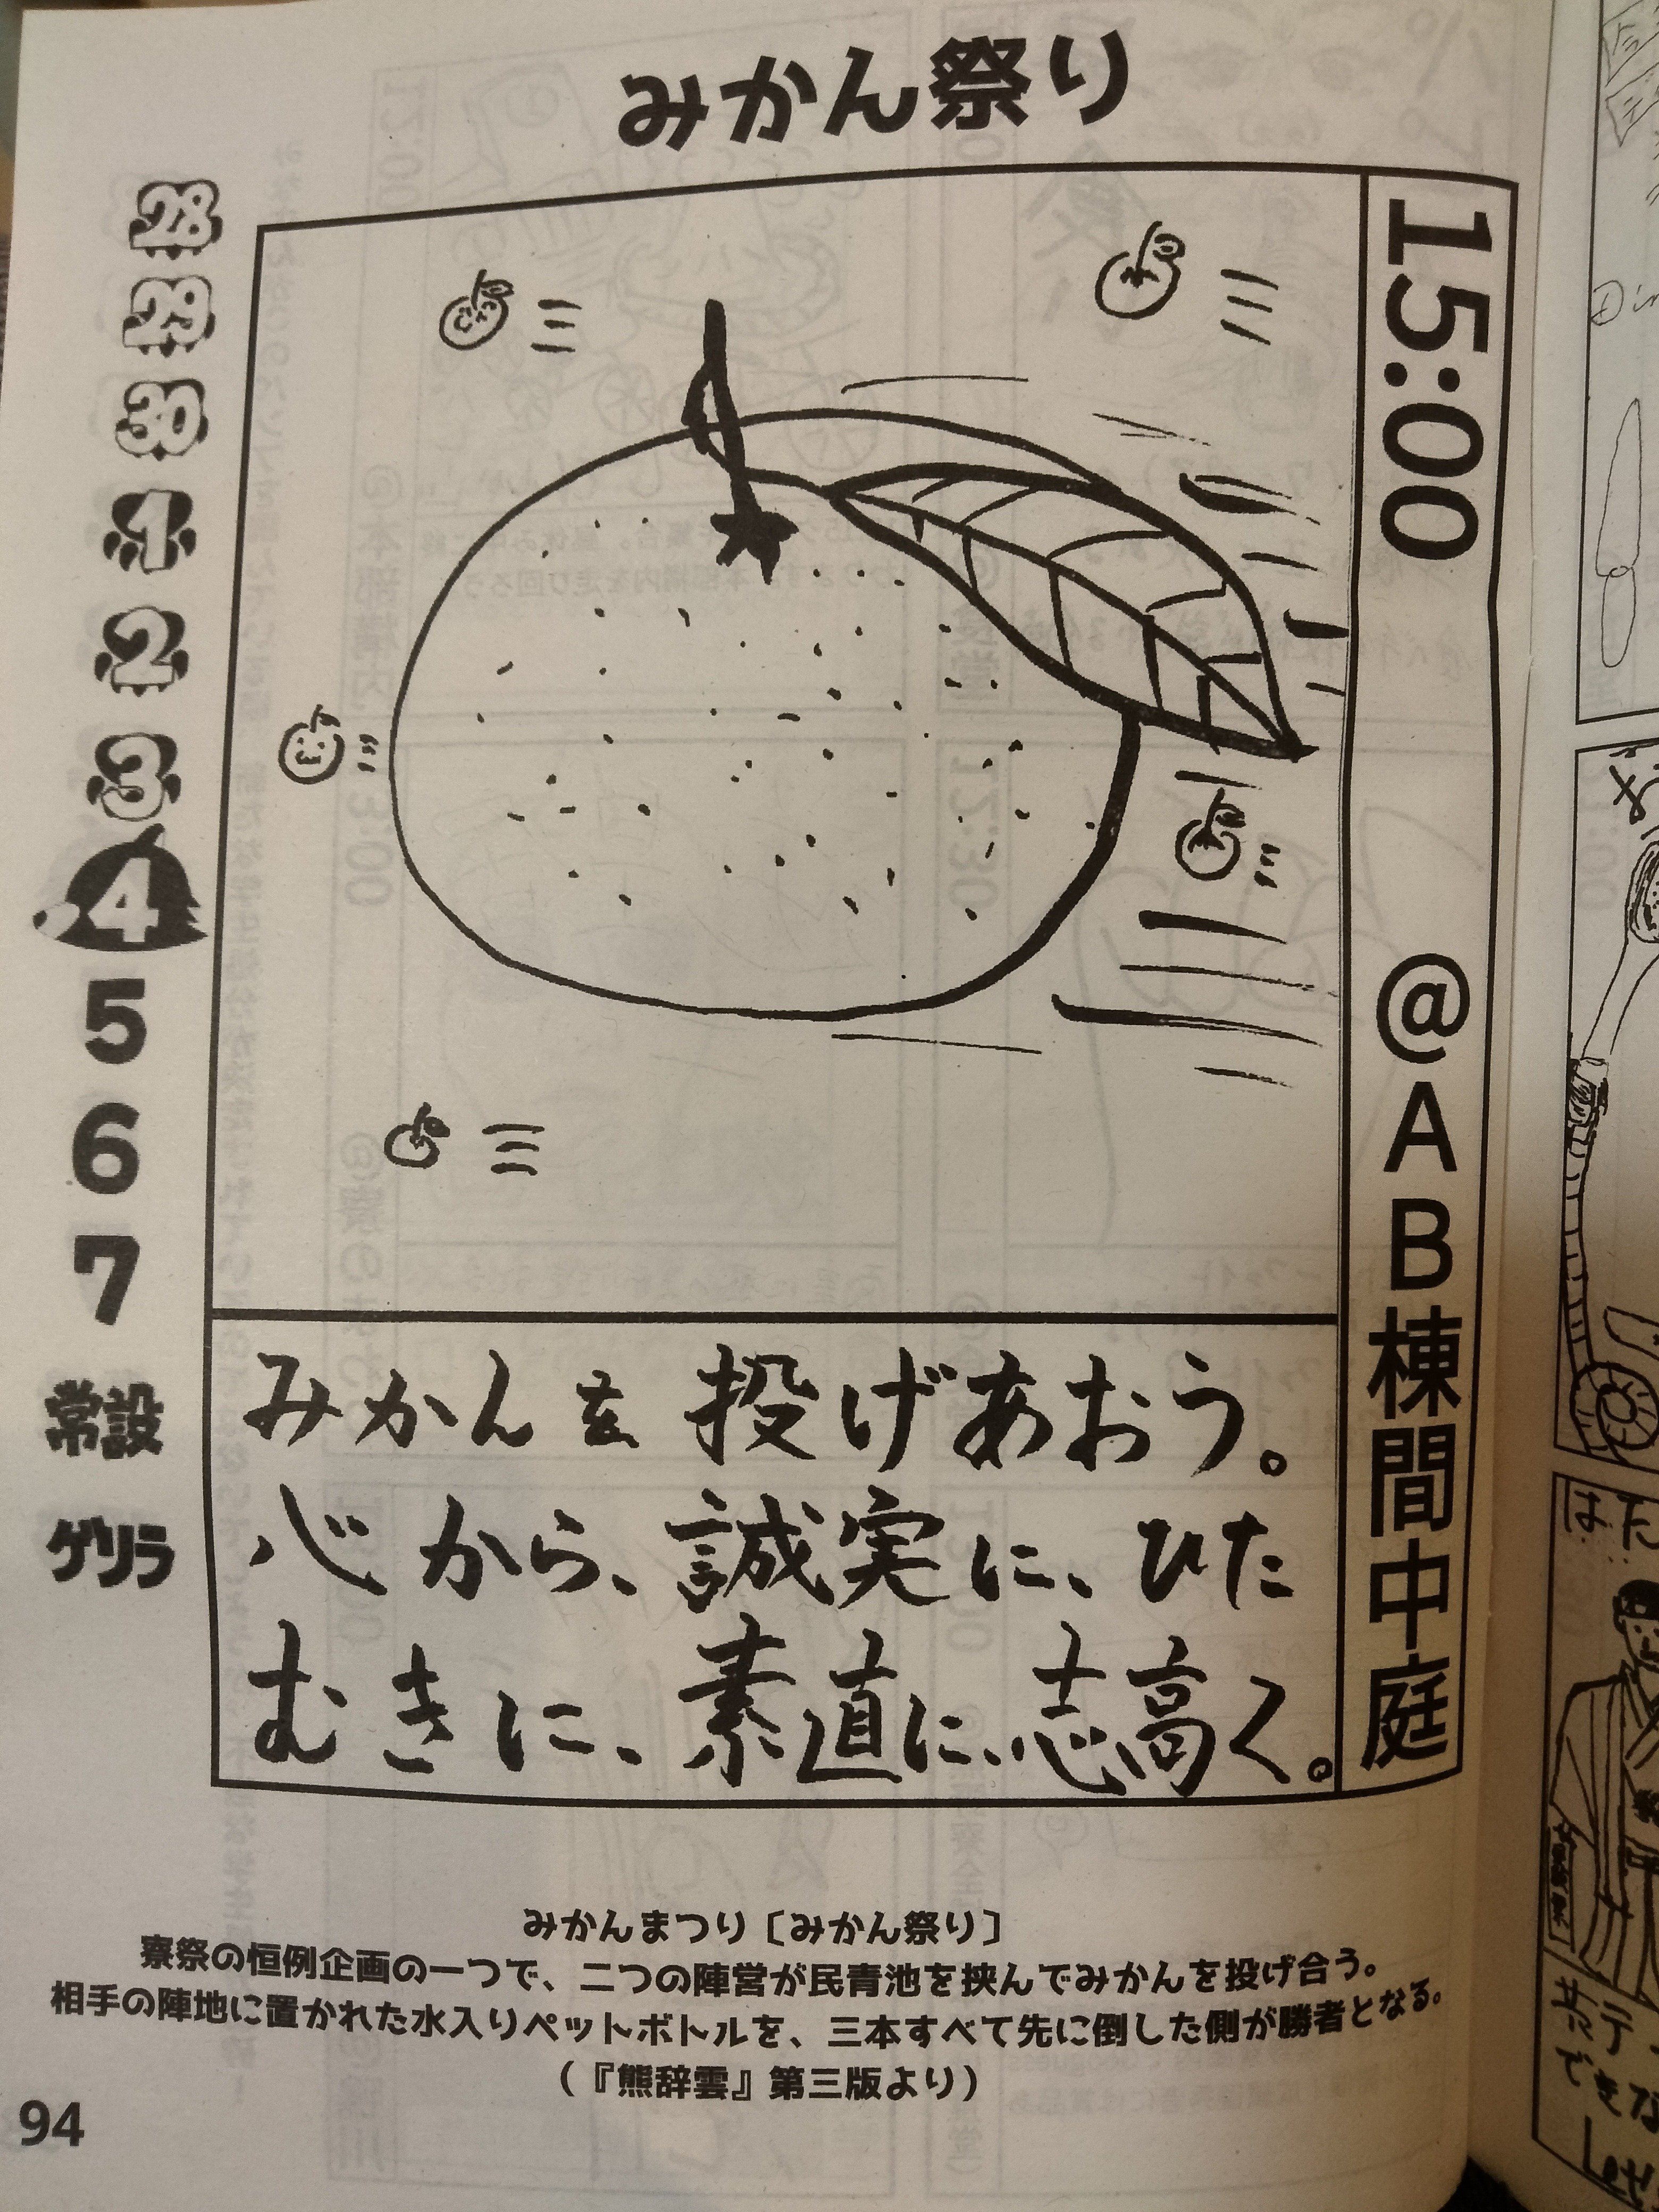 みかん祭り
28
29
30
1
2
3
4
5
6
7
常設
ゲリラ
15:00 @AB棟間中庭
みかんを投げあおう。
心から、誠実に、ひた
むきに、素直に、志高く。
みかんまつり〔みかん祭り〕
寮祭の恒例企画の一つで、二つの陣営が民青池を挟んでみかんを投げ合う。
相手の陣地に置かれた水入りペットボトルを、三本すべて先に倒した側が勝者となる。
(『熊辞雲』第三版より)
94